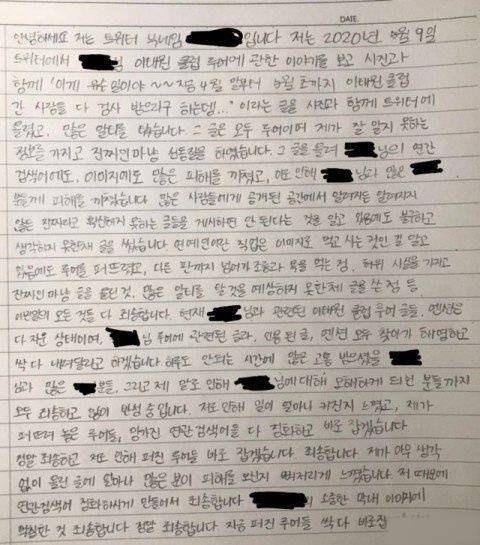 DATE.
안녕하세요 저는 트위터 닉네임 입니다 저는 2020년 5월 9일
트위터에서 님 이태원 클럽 루머에 관한 이야기를 보고 사진과
함께 '이게 무슨 일이야 ~~ 지금 4월 말부터 5월 초까지 이태원 클럽
간 사람들 다 검사 받으라구 하는뎀…' 이라는 글을 사진과 함께 트위터에
올렸고, 많은 알티를 탔습니다. 그 글은 모두 루머이며 제가 잘 알지 못하는
정보를 가지고 진짜인마냥 선동질을 하였습니다. 그 글을 올려 님의 연관
검색어에도, 이미지에도 많은 피해를 끼쳤고, 이로 인해 님과 많은
분들께 피해를 끼쳤습니다. 많은 사람들에게 공개된 공간에서 알려지든 알려지지
않든 진짜라고 확신하지 못하는 글들을 게시하면 안 된다는 것을 알고 있음에도 불구하고
생각하지 못한채 글을 썼습니다 연예인이란 직업은 이미지로 먹고 사는 것인 걸 알고
있음에도 루머를 퍼뜨렸고, 다른 판까지 넘어가 조롱과 욕을 먹는 점. 허위 사실을 가지고
진짜인 마냥 글을 올린 것. 많은 알티를 탈 것을 예상하지 못한채 글을 쓴 점 등
이런일의 모든 것들 다 죄송합니다. 현재 님과 관련된 이태원 클럽 루머 글들, 멘션은
다 지운 상태이며, 님 루머에 관련된 글과, 인용된 글, 멘션 모두 찾아가 해명하고
싹 다 내려달라고 하겠습니다 하루도 안되는 시간에 많은 고통 받으셨을
님과 많은 분들, 그리고 제 말로 인해 님에 대해 오해하게 되신 분들까지
모두 죄송하고 많이 반성 중입니다. 저로 인해 일이 얼마나 커진지 느꼈고, 제가
퍼뜨려 놓은 루머들, 망가진 연관 검색어들 다 정화하고 바로 잡겠습니다
정말 죄송하고 저로 인해 퍼진 루머들 바로 잡겠습니다. 죄송합니다. 제가 아무 생각
없이 올린 글에 얼마나 많은 분이 피해를 보신지 뼈저리게 느꼈습니다. 저 때문에
연관검색어 정화하시게 만들어서 죄송합니다 의 소중한 막내 이미지에
먹칠한 것 죄송합니다 정말 죄송합니다 지금 퍼진 루머들 싹 다 바로잡